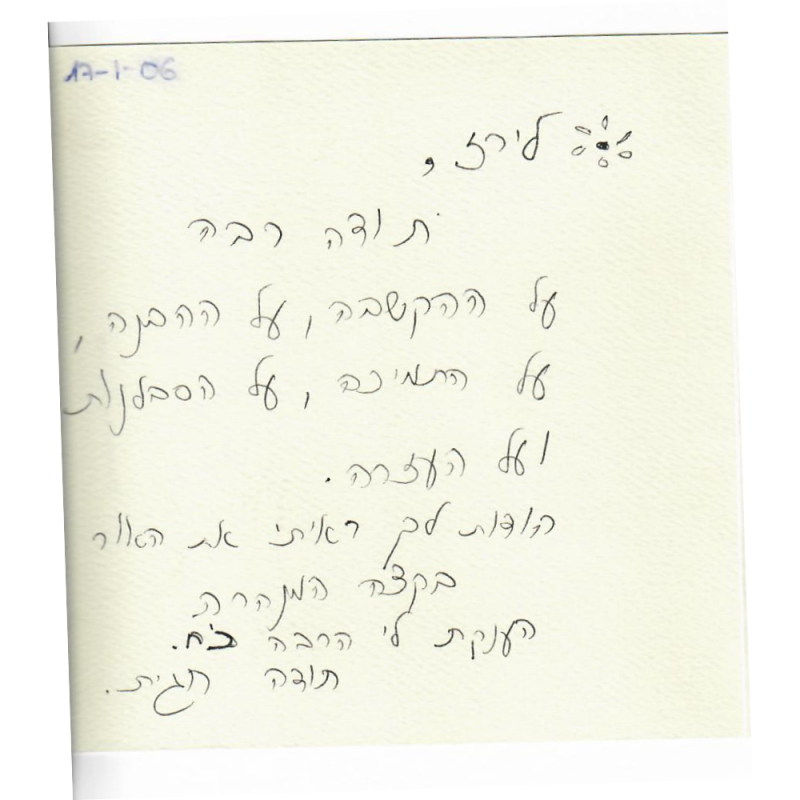 17-1-06
לירז,
תודה רבה
על ההקשבה, על ההבנה,
על התמיכה, על הסבלנות
ועל העזרה.
הודות לך ראיתי את האור
בקצה המנהרה
הענקת לי הרבה כח.
תודה חגית.